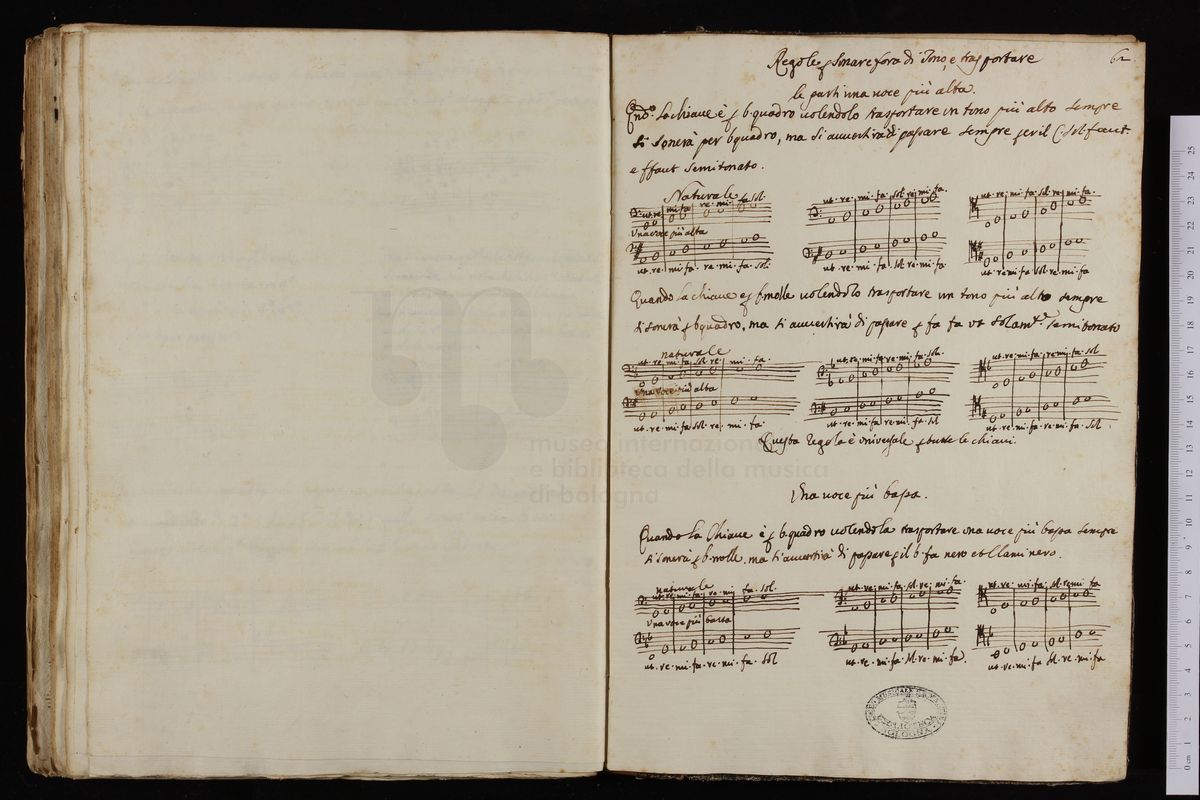 Regole p sonare fora di Tono, e trasportare
62.
le parti una voce più alta.
Qndo. la chiave è p b. quadro volendolo trasportare un tono più alto sempre
si sonerà per b quadro, ma si avvertirà di passare sempre per il C. sol faut.
e ffaut semitonato.
Naturale
ut. re mi fa re mi fa sol
ut. re. mi. fa. sol re. mi. fa.
ut. re. mi. fa. sol. re. mi. fa.
Una voce più alta
ut. re. mi. fa. re. mi. fa. sol.
ut. re. mi. fa. sol re. mi. fa
ut re mi fa sol re mi fa
Quando la chiave e p b. molle volendolo trasportare un tono più alto sempre
si sonerà p b quadro, ma si avvertirà di passare p fa fa ut solamte. semitonato
naturale
ut. re. mi. fa. sol re. mi. fa.
ut. re. mi. fa. re. mi. fa. sol.
ut. re. mi. fa. re mi. fa. sol
Una voce più alta
ut. re. mi. fa sol. re. mi. fa
ut. re. mi fa re mi. fa sol
ut. re. mi. fa. re. mi. fa. sol
Questa regola è universale p tutte le chiavi.
museo internazionale
e biblioteca della musica
di bologna
Una voce più bassa.
Quando la Chiave è p b. quadro volendola trasportare una voce più bassa sempre
si sonerà p b. molle. ma si avvertirà di passare p il b. fa nero et Elami nero.
naturale
ut. re. mi. fa. re mi fa. sol.
ut. re. mi. fa. sol. re. mi. fa.
ut. re. mi. fa. sol. re mi fa
Una voce più bassa
ut. re. mi. fa. re. mi. fa. sol
ut. re. mi. fa. sol. re. mi. fa.
ut. re. mi. fa sol. re. mi. fa
BIBLIOTECA
BOLOGNA